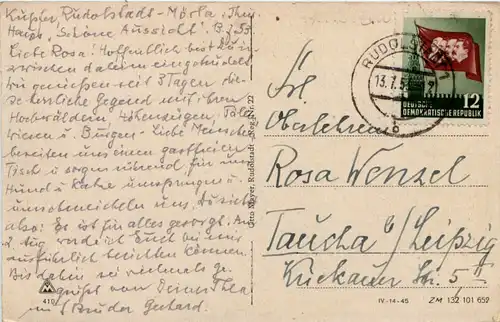 Kupfer, Rudolstadt-Mörla, Thür.
Haus „Schöne Aussicht". 8.7.53.
Liebe Rosa! Hoffentlich bist Du in-
zwischen daheim eingetrudelt
wir genießen seit 3 Tagen die-
se herrliche Gegend mit ihren
Hochwäldern, Höhenzügen, Täler,
Wiesen u. Burgen. Liebe Menschen
bereiten uns einen gastfreien
Tisch u. sorgen rührend für uns
Hund u. Katze umspringen u.
umschmeicheln uns, Du siehst
also: Es ist für alles gesorgt. An-
Tag werde ich Euch bei uns
ausführlich berichten können.
Bis dahin sei vielmals ge-
grüßt von Deiner Thea
u. Bruder Gerhard.
410
Otto Meyer, Rudolstadt 22
RUDOLSTADT
13.7.53
b
DEUTSCHE
DEMOKRATISCHE REPUBLIK
12
Frl.
Oberlehrerin
Rosa Wenzel
Taucha b/ Leipzig
Str. 5 II
IV-14-45 ZM 132 101 652